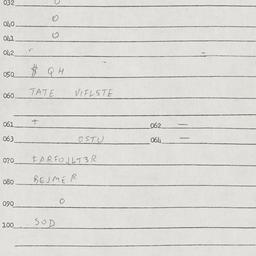 032 0
040 0
041 0
042
050 $ QH
060 TATE VIFLSTE
061 + 062 —
063 OSTU 064 —
070
080 BEJMER
090 0
100 SOD